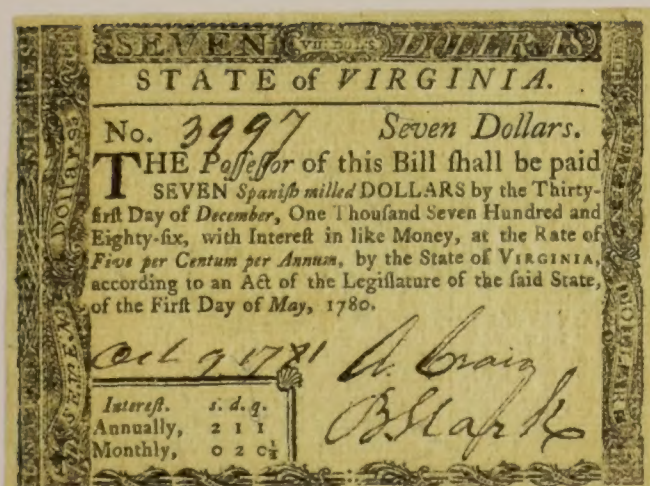 SEVEN VII DOL'S. DOLLRAS
STATE of VIRGINIA.
No. 3997 Seven Dollars.
THE Poſſeſſor of this Bill ſhall be paid
SEVEN Spaniſh milled DOLLARS by the Thirty-
firſt Day of December, One Thouſand Seven Hundred and
Eighty-ſix, with Intereſt in like Money, at the Rate of
Five per Centum per Annum, by the State of VIRGINIA,
according to an Act of the Legiſlature of the ſaid State,
of the Firſt Day of May, 1780.
Oct 9 1781
A. Craig
B. Stark
Intereſt. s. d. q.
Annually, 2 1 1
Monthly, 0 2 0½
SEVEN
Dollars
DOLLARS